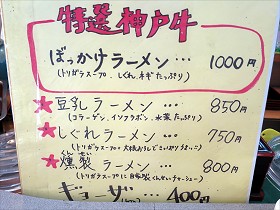 特選神戸牛
ぼっかけラーメン… 1000円
(トリガラスープ、しぐれ、ネギたっぷり)
★豆乳ラーメン … 850
(コラーゲン、イソフラボン、水菜たっぷり)
★しぐれラーメン … 750
(トリガラスープの大根おろしでさっぷりさっこ)
くんせい
★燻製ラーメン … 800
(トリガラスープに自家製くんせいチャーシュー)
ギョーザ… 400円